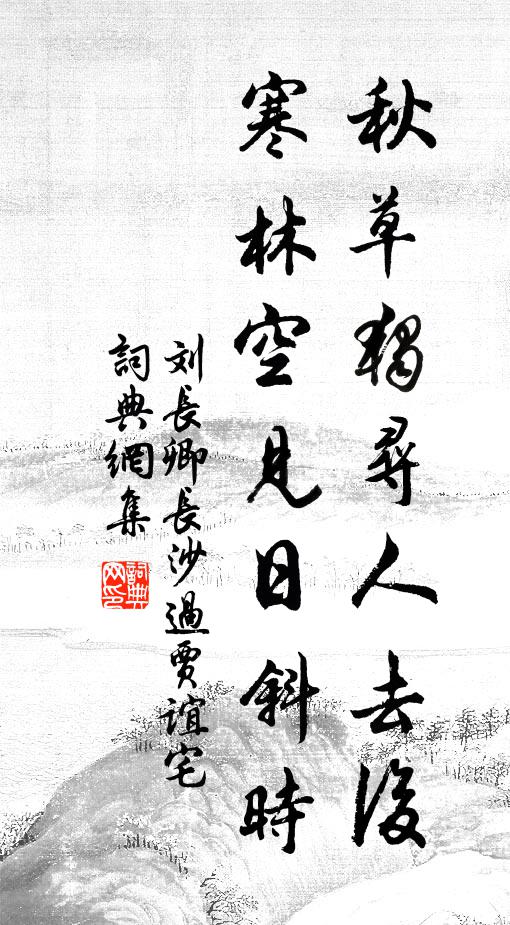 秋草獨尋人去後
寒林空見日斜時
刘長卿長沙過賈誼宅
詞典網集
詞典网印